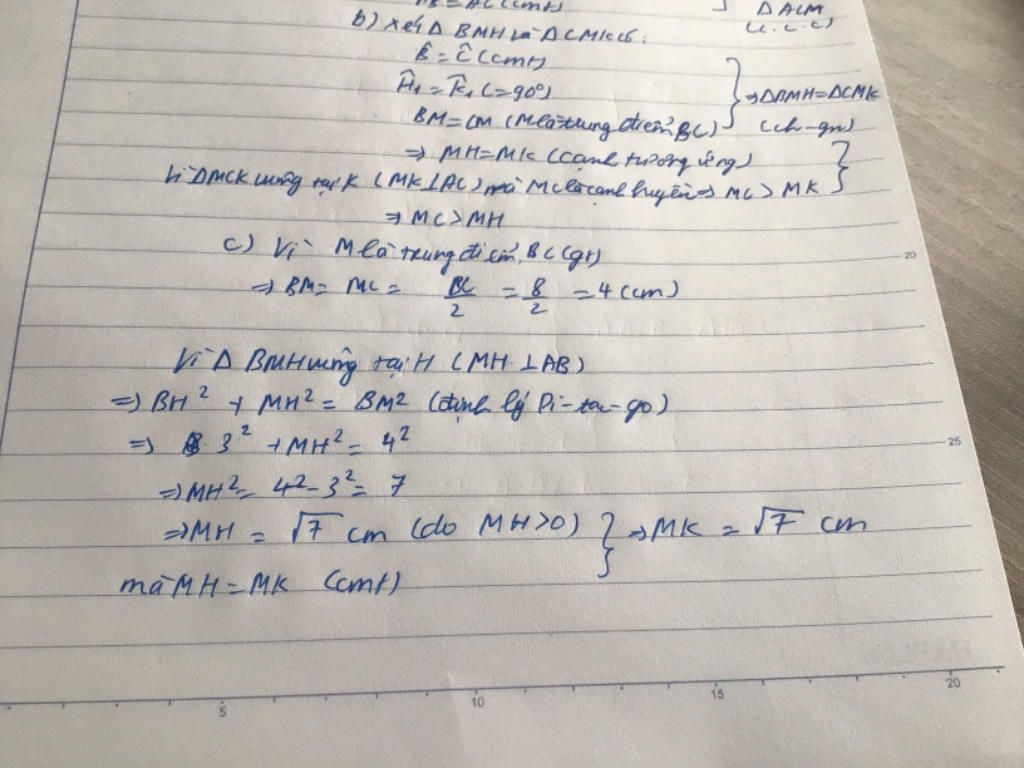 = AC (cmt)
Δ ACM
(c.c.c)
b) Xét Δ BMH và Δ CMK có:
B̂ = Ĉ (cmt)
Ĥ₁ = K̂₁ (=90°)
BM = CM (M là trung điểm BC)
⇒ ΔBMH = ΔCMK
(ch-gn)
⇒ MH = MK (cạnh tương ứng)
Vì ΔMCK vuông tại K (MK ⊥ AC) mà MC là cạnh huyền ⇒ MC > MK
⇒ MC > MH
c) Vì M là trung điểm BC (gt)
⇒ BM = MC = BC/2 = 8/2 = 4 (cm)
Vì Δ BMH vuông tại H (MH ⊥ AB)
⇒ BH² + MH² = BM² (định lý Pi-ta-go)
⇒ 3² + MH² = 4²
⇒ MH² = 4² - 3² = 7
⇒ MH = √7 cm (do MH > 0) } ⇒ MK = √7 cm
mà MH = MK (cmt)
20
25
5 10 15 20